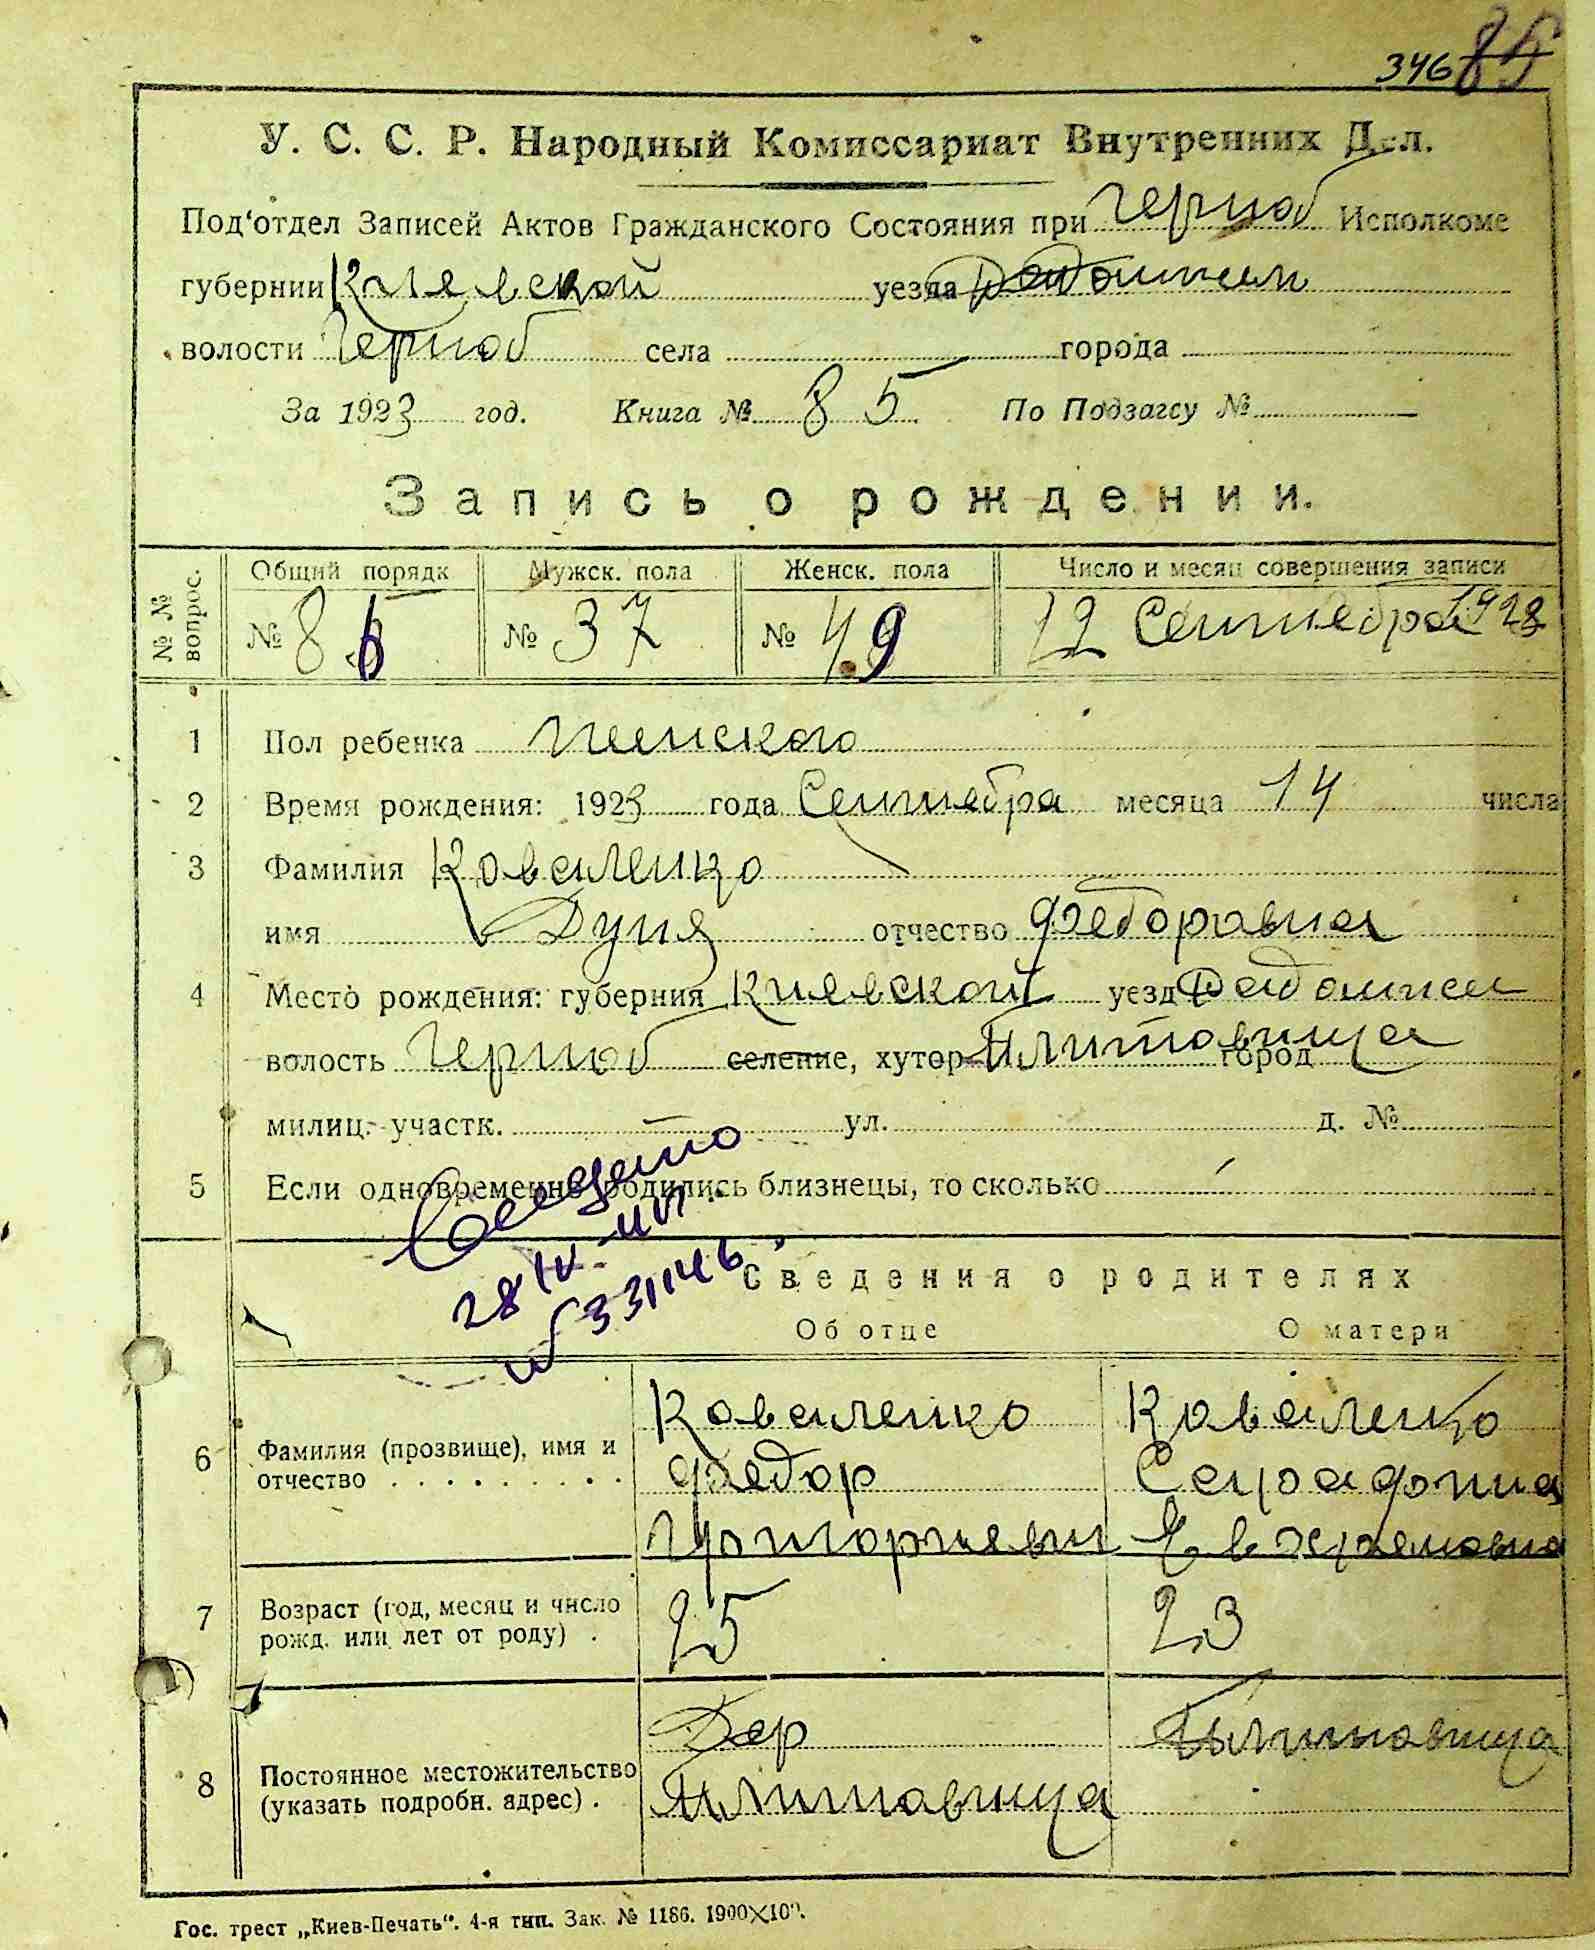 346 85
У. С. С. Р. Народный Комиссариат Внутренних Дел.
Под'отдел Записей Актов Гражданского Состояния при Черноб Исполкоме
губернии Киевской уезда
волости Черноб села города
За 1923 год. Книга № 85 По Подзагсу №
Запись о рождении.
№ № вопрос. Общий порядк Мужск. пола Женск. пола Число и месяц совершения записи
№ 86 № 37 № 49 12 Сентебра 1923
1 Пол ребенка женского
2 Время рождения: 1923 года Сентебра месяца 14 числа
3 Фамилия Коваленко
имя Дуня отчество Федоравна
4 Место рождения: губерния Киевской уезд
волость Черноб селение, хутор Плитовища город
милиц. участк. ул. д. №
5 Если одновременно родились близнецы, то сколько
28 IV
№ 331146
Сведения о родителях
Об отце О матери
6 Фамилия (прозвище), имя и отчество Коваленко Коваленко
Федор Серафима
Григориевич
7 Возраст (год, месяц и число рожд. или лет от роду) . 25 23
8 Постоянное местожительство (указать подробн. адрес) . Дер Плитовища
Плитавища
Гос. трест „Киев-Печать“. 4-я тип. Зак. № 1186. 1900×100.